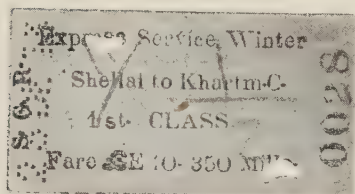 Express Service, Winter
Shellal to Khartm-C-
1st CLASS
Fare £E 10. 350 Mills.
S.G.R.
0028